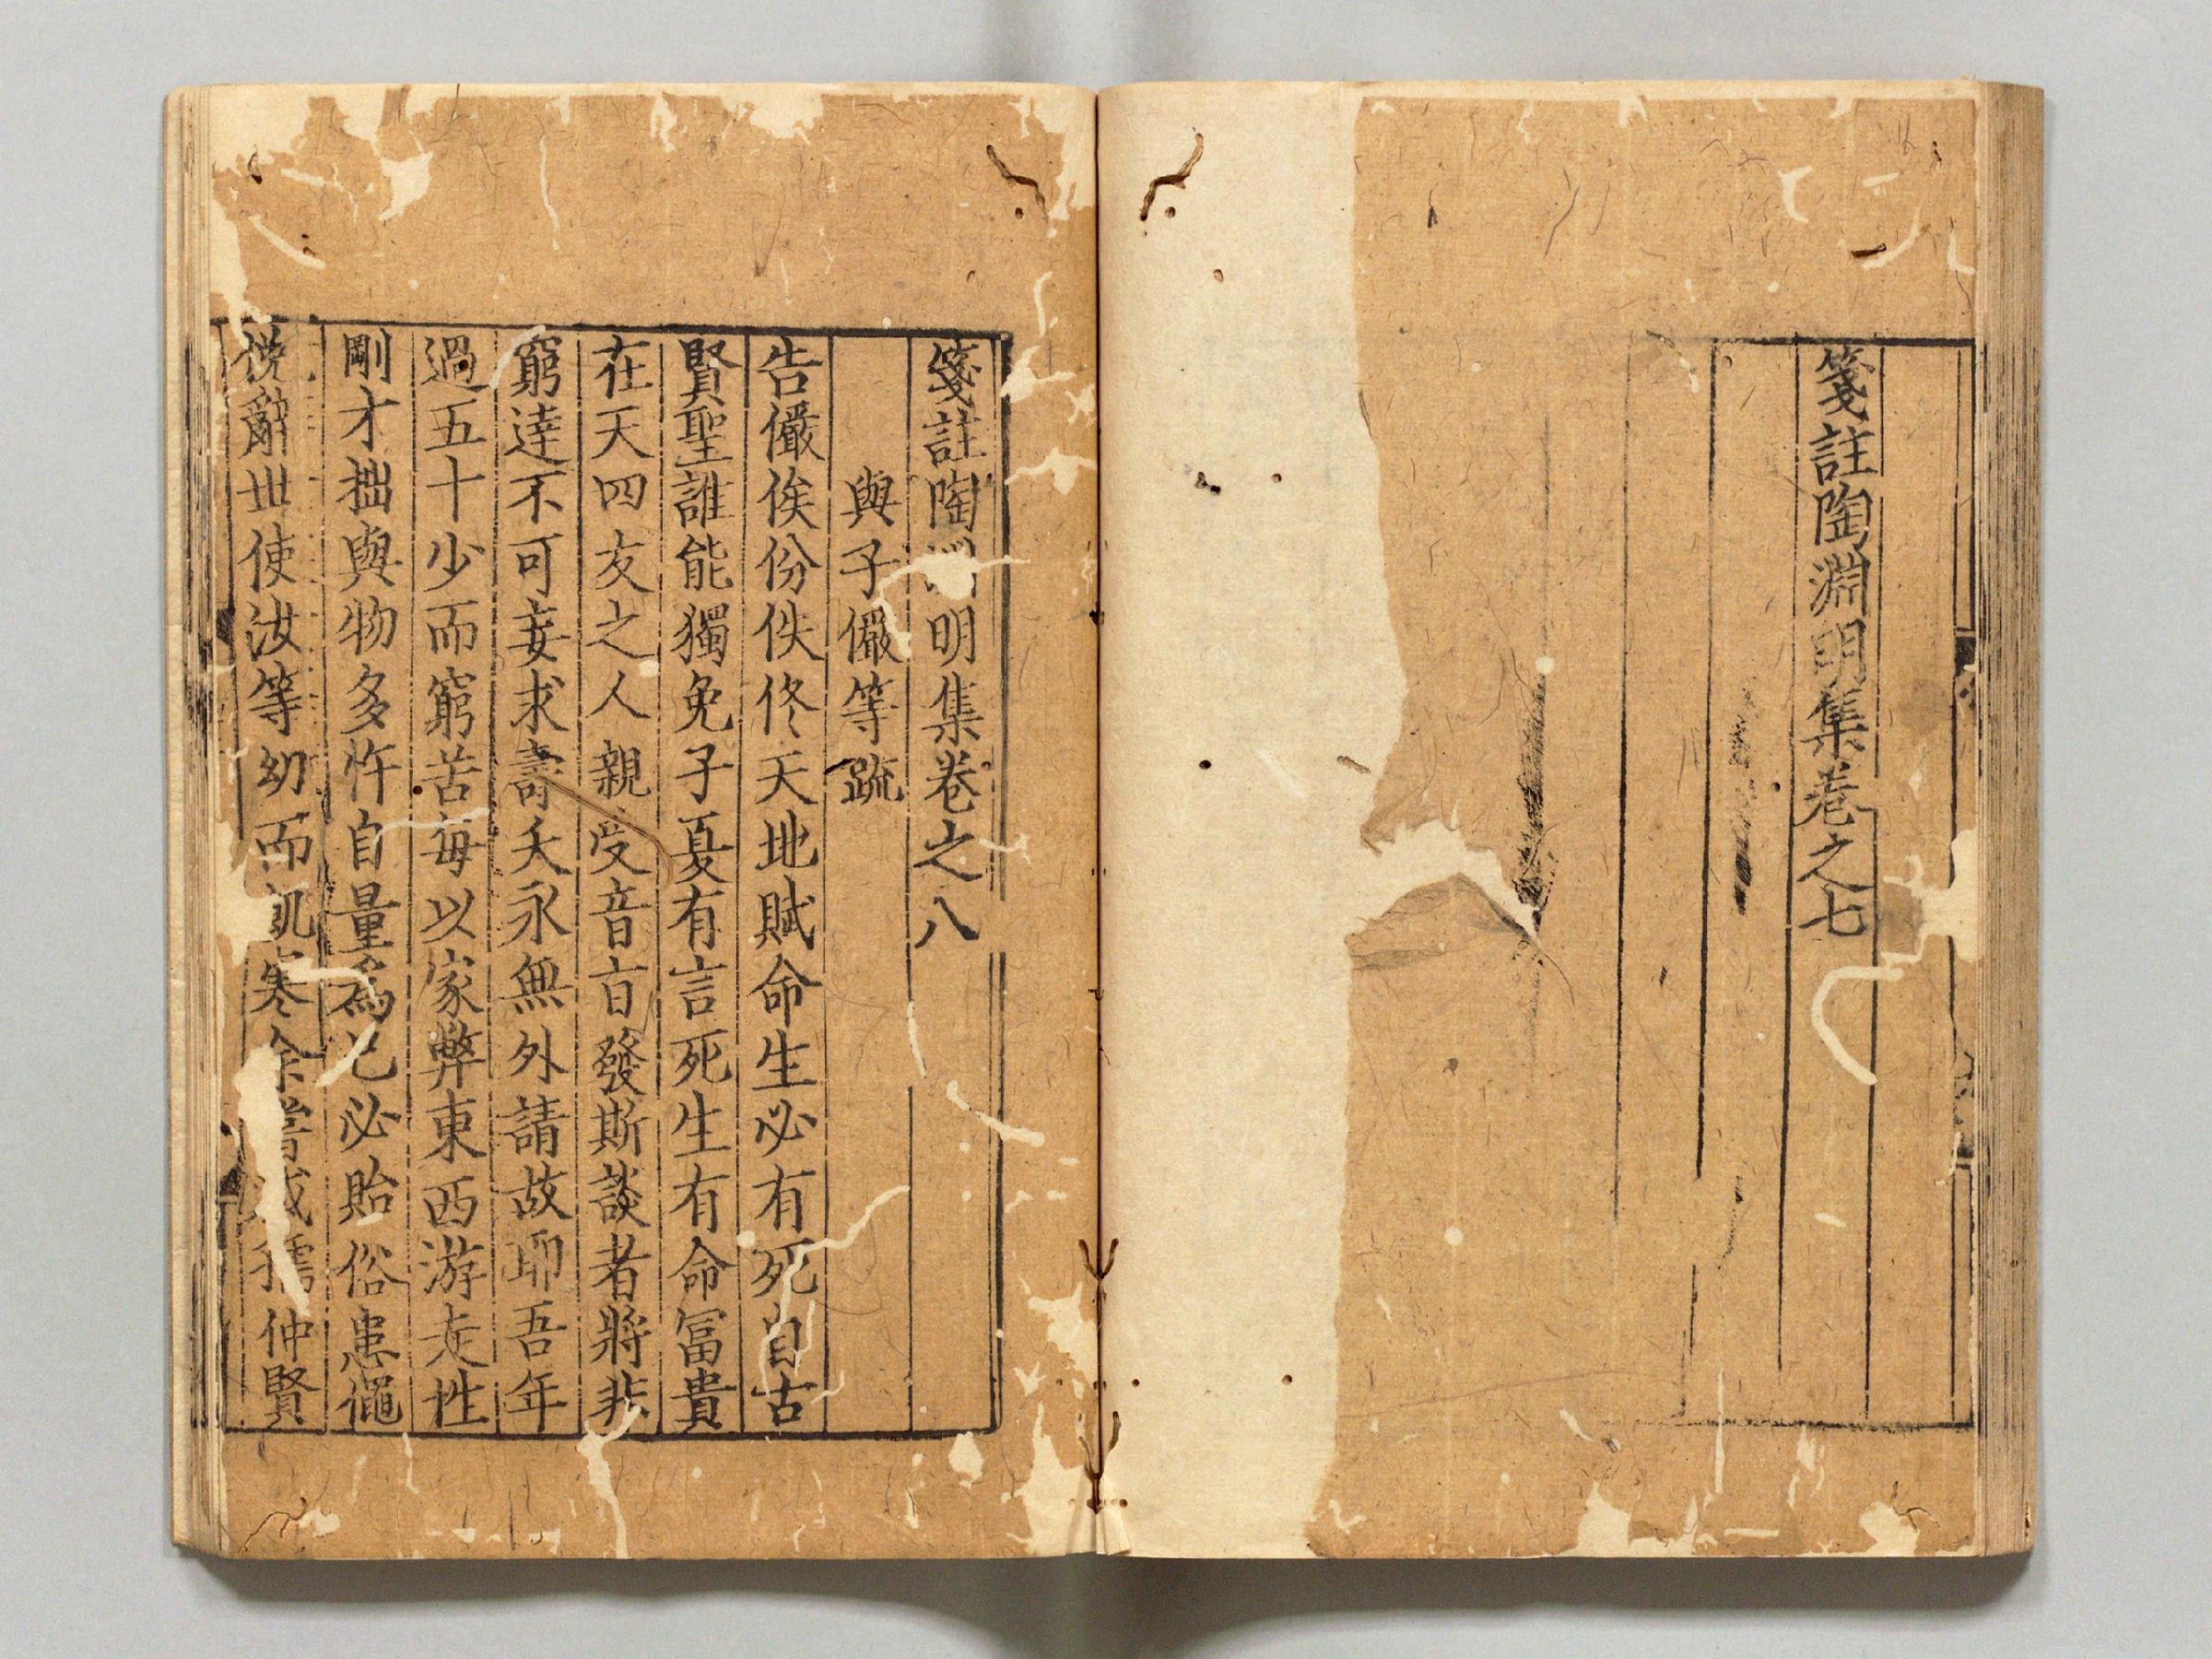 箋註陶淵明集卷之七
箋註陶淵明集卷之八
與子儼等疏
告儼俟份佚佟天地賦命生必有死自古
賢聖誰能獨免子夏有言死生有命冨貴
在天四友之人親受音旨發斯談者將非
窮達不可妄求壽夭永無外請故耶吾年
過五十少而窮苦每以家弊東西游走性
剛才拙與物多忤自量爲己必貽俗患僶
俛辭世使汝等幼而飢寒余甞感孺仲賢